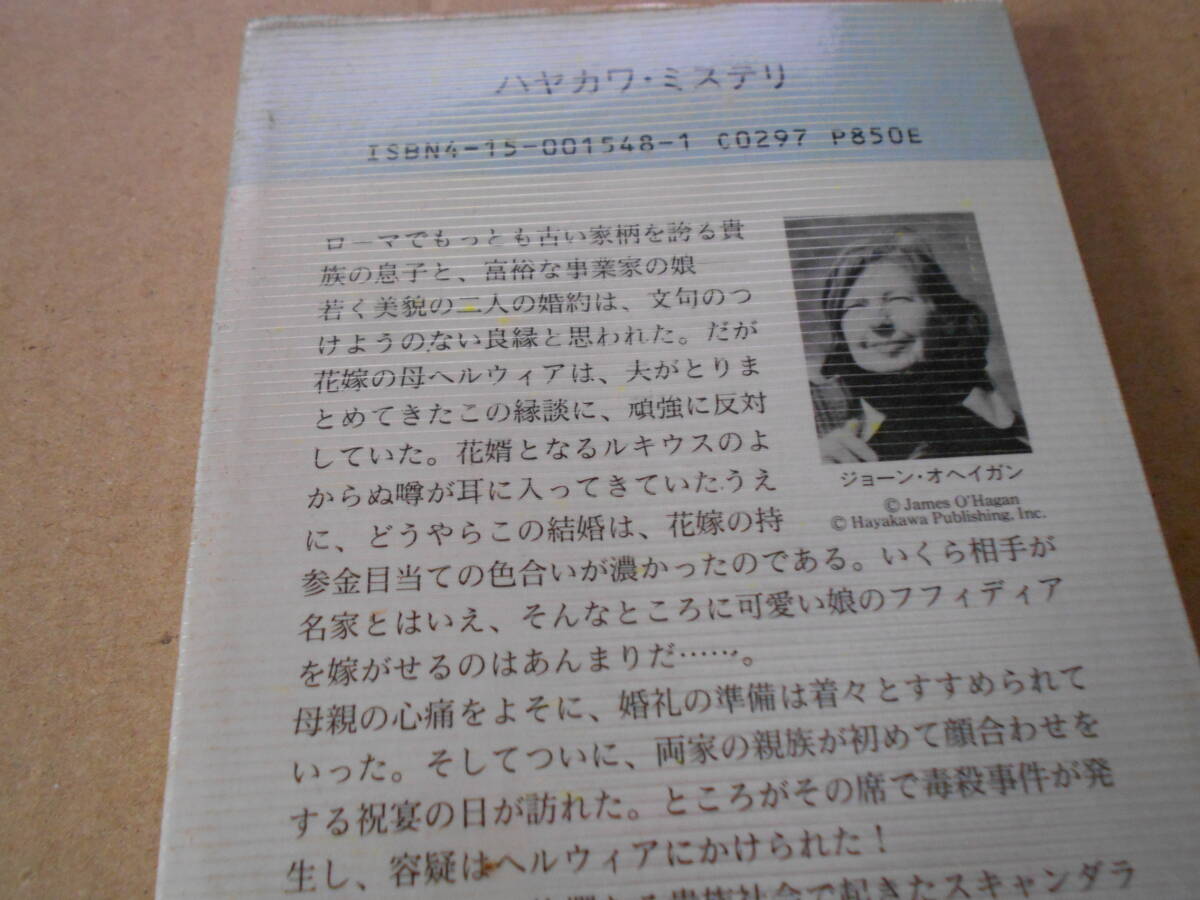 ハヤカワ・ミステリ
ISBN4-15-001548-1 C0297 P850E
ローマでもっとも古い家柄を誇る貴
族の息子と、富裕な事業家の娘――
若く美貌の二人の婚約は、文句のつ
けようのない良縁と思われた。だが
花嫁の母ヘルウィアは、夫がとりま
とめてきたこの縁談に、頑強に反対
していた。花婿となるルキウスのよ
からぬ噂が耳に入ってきていたうえ
に、どうやらこの結婚は、花嫁の持
参金目当ての色合いが濃かったのである。いくら相手が
名家とはいえ、そんなところに可愛い娘のフフィディア
を嫁がせるのはあんまりだ……。
母親の心痛をよそに、婚礼の準備は着々とすすめられて
いった。そしてついに、両家の親族が初めて顔合わせを
する祝宴の日が訪れた。ところがその席で毒殺事件が発
生し、容疑はヘルウィアにかけられた！
る貴族社会で起きたスキャンダラ
ジョーン・オヘイガン
© James O'Hagan
© Hayakawa Publishing, Inc.